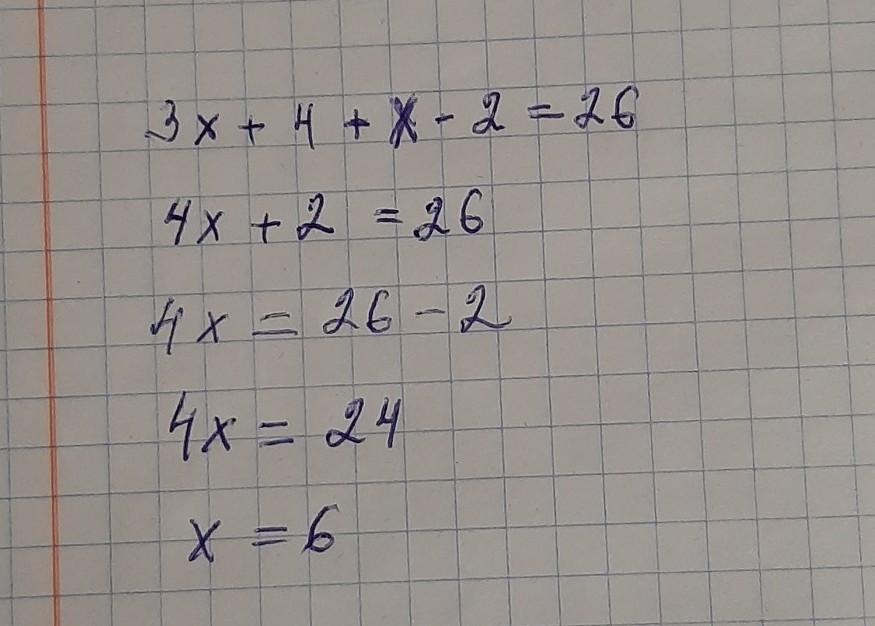 3x + 4 + x - 2 = 26
4x + 2 = 26
4x = 26 - 2
4x = 24
x = 6